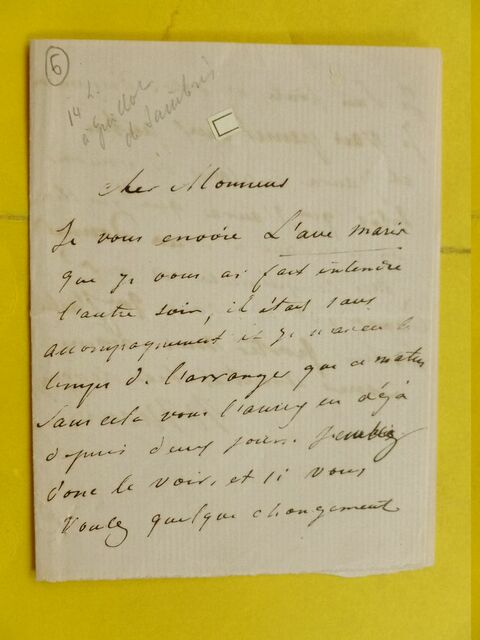 6
14 L.
à Guillot
de Sainbris
Cher Monsieur
Je vous envoie L'ave maria
que je vous ai fait entendre
l'autre soir, il était sans
accompagnement et je n'ai eu le
temps de l'arranger que ce matin
Sans cela vous l'auriez eu déjà
depuis deux jours. veuillez
donc le voir, et si vous
Voulez quelque changement